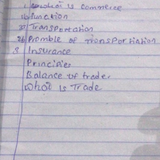 1, What is Commerce
2) Function
3) Transportation
4) Promble of transportation
5 Insurance
Principles
Balance of trade
What is Trade